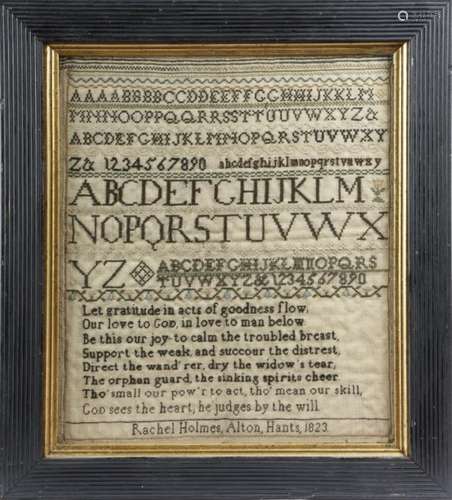 AAAABBBBCCDDEEFFGGHHIJKKLM
MMNNOOPPQQRRSSTTUUVWXYZ&
ABCDEFGHIJKLMNOPQRSTUVWXY
Z& 1234567890 abcdefghijklmnopqrstuvwxy
ABCDEFGHIJKLM
NOPQRSTUVWX
YZ
ABCDEFGHIJKLMNOPQRS
TUVWXYZ&1234567890
Let gratitude in acts of goodness flow,
Our love to GOD, in love to man below.
Be this our joy to calm the troubled breast,
Support the weak, and succour the distrest,
Direct the wand'rer, dry the widow's tear,
The orphan guard, the sinking spirits cheer.
Tho' small our pow'r to act, tho' mean our skill,
GOD sees the heart, he judges by the will.
Rachel Holmes, Alton, Hants, 1823.